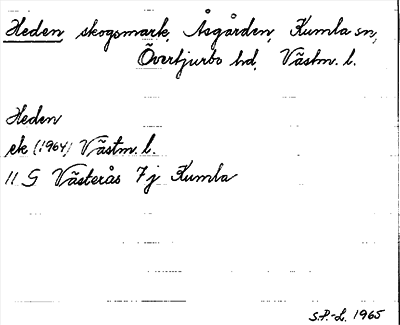 Heden skogsmark, Åsgården, Kumla sn,
Övertjurbo hd, Västm. l.
Heden
ek (1964) Västm. l.
11 G Västerås 7j Kumla
S.P.-L. 1965